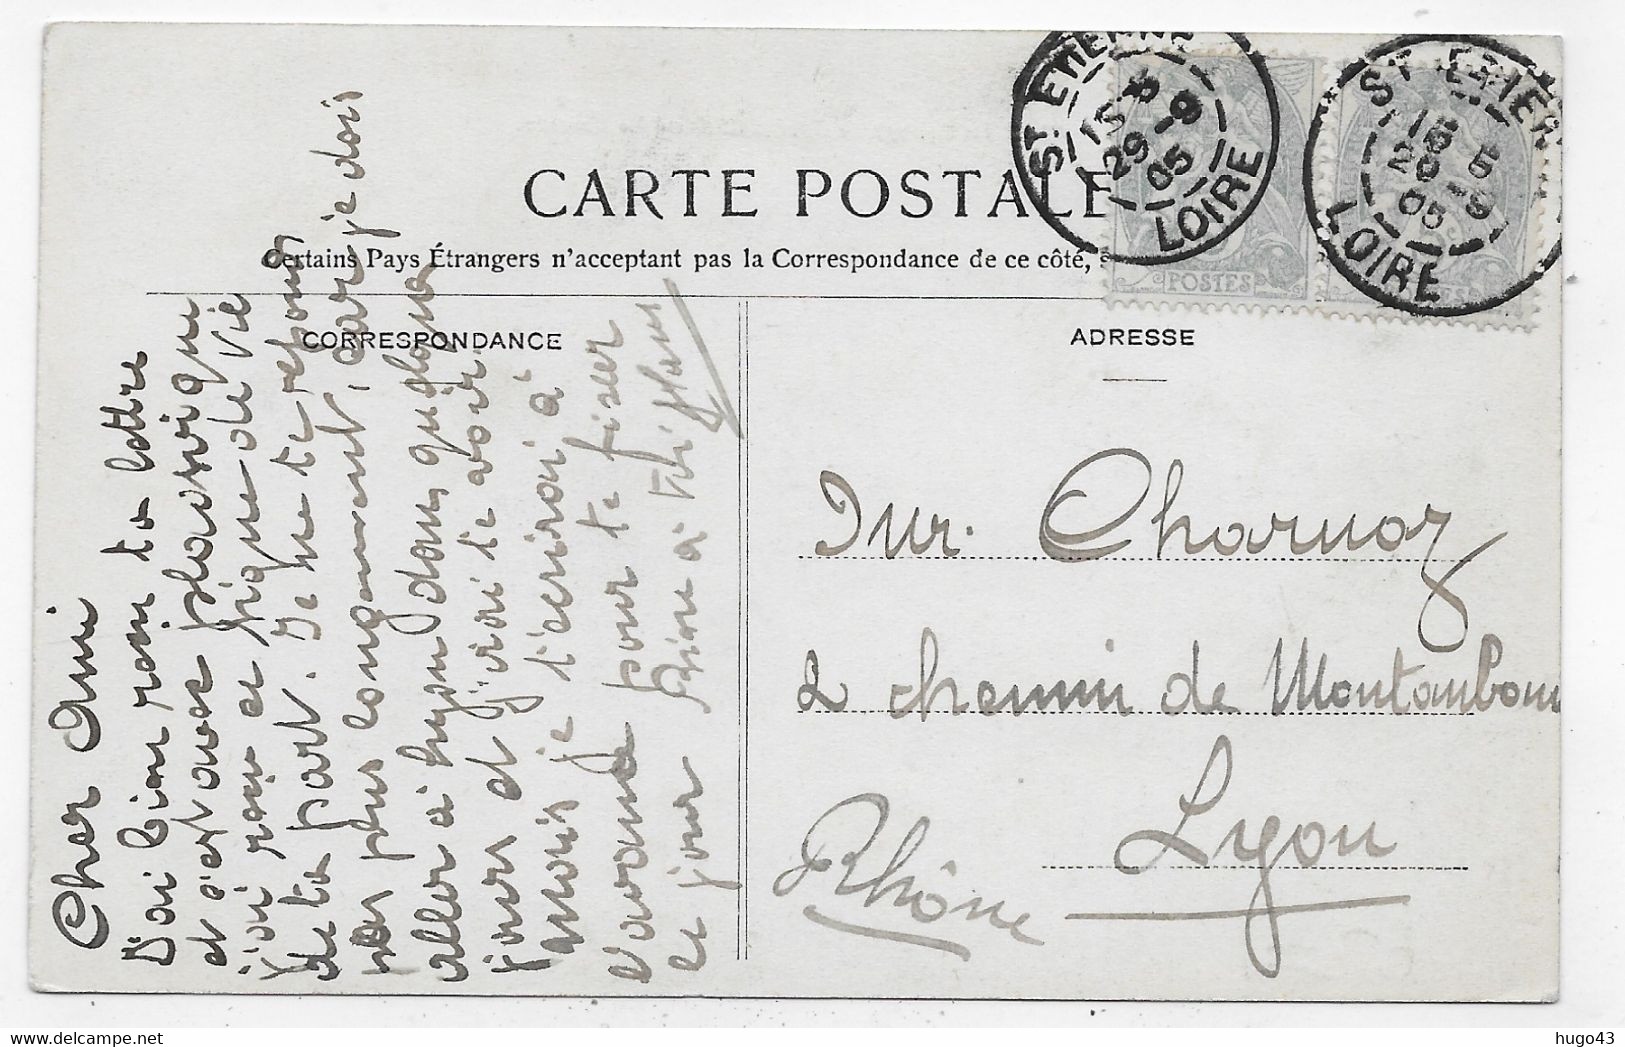 CARTE POSTALE
Certains Pays Étrangers n'acceptent pas la Correspondance de ce côté,
CORRESPONDANCE
ADRESSE
ST ETIENNE
15 5
29 - 9
05
LOIRE
ST ETIEN
15 5
29 - 9
05
LOIRE
POSTES
Cher Ami
J'ai bien reçu ta lettre
et c'est avec plaisir que
j'ai reçu ce signe de vie
de ta part. Je ne te répons
pas plus longuement, car je dois
aller à Lyon dans quelques
jours et j'irai te voir
mais je t'écrirai à
l'avance pour te fixer
ce jour Bien à toi
Mr. Charnay
2 chemin de Montauban
Lyon
Rhône
hugo43